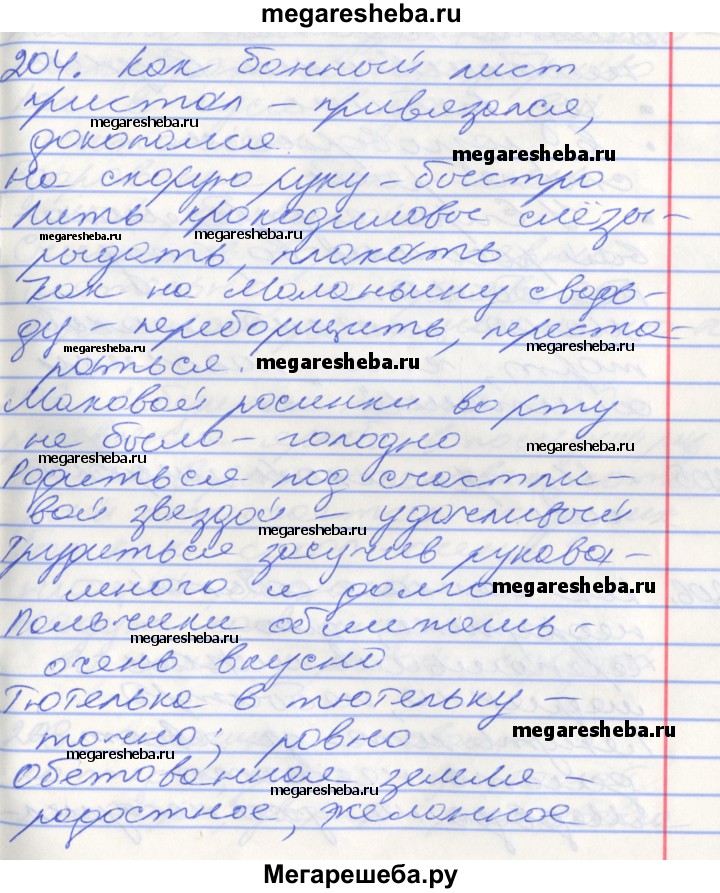 megaresheba.ru
204. Как банный лист
пристал – привязался,
megaresheba.ru
докопался.
megaresheba.ru
На скорую руку – быстро
Лить крокодиловы слёзы –
megaresheba.ru
megaresheba.ru
рыдать, плакать
Как на Маланьину свадь-
бу – переборщить, переста-
megaresheba.ru
megaresheba.ru
раться.
megaresheba.ru
Маковой росинки во рту
не было – голодно
megaresheba.ru
megaresheba.ru
Родиться под счастли-
вой звездой – удачливый
megaresheba.ru
Трудиться засучив рукава –
много и долго
megaresheba.ru
Пальчики оближешь –
megaresheba.ru
очень вкусно
Тютелька в тютельку –
точно; ровно
megaresheba.ru
megaresheba.ru
Обетованная земля –
megaresheba.ru
радостное, желанное
Мегарешеба.ру